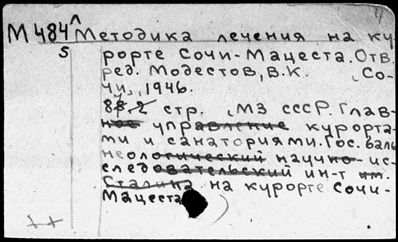 4
М484 Методика лечения на ку-
5 рорте Сочи-Мацеста. Отв.
ред. Модестов, В.К. Со-
чи, 1946.
стр. МЗ СССР. Глав-
ное управление курорта-
ми и санаториями. Гос. баль
неологический научно-ис-
следовательский ин-т им.
Сталина на курорте Сочи-
Мацеста